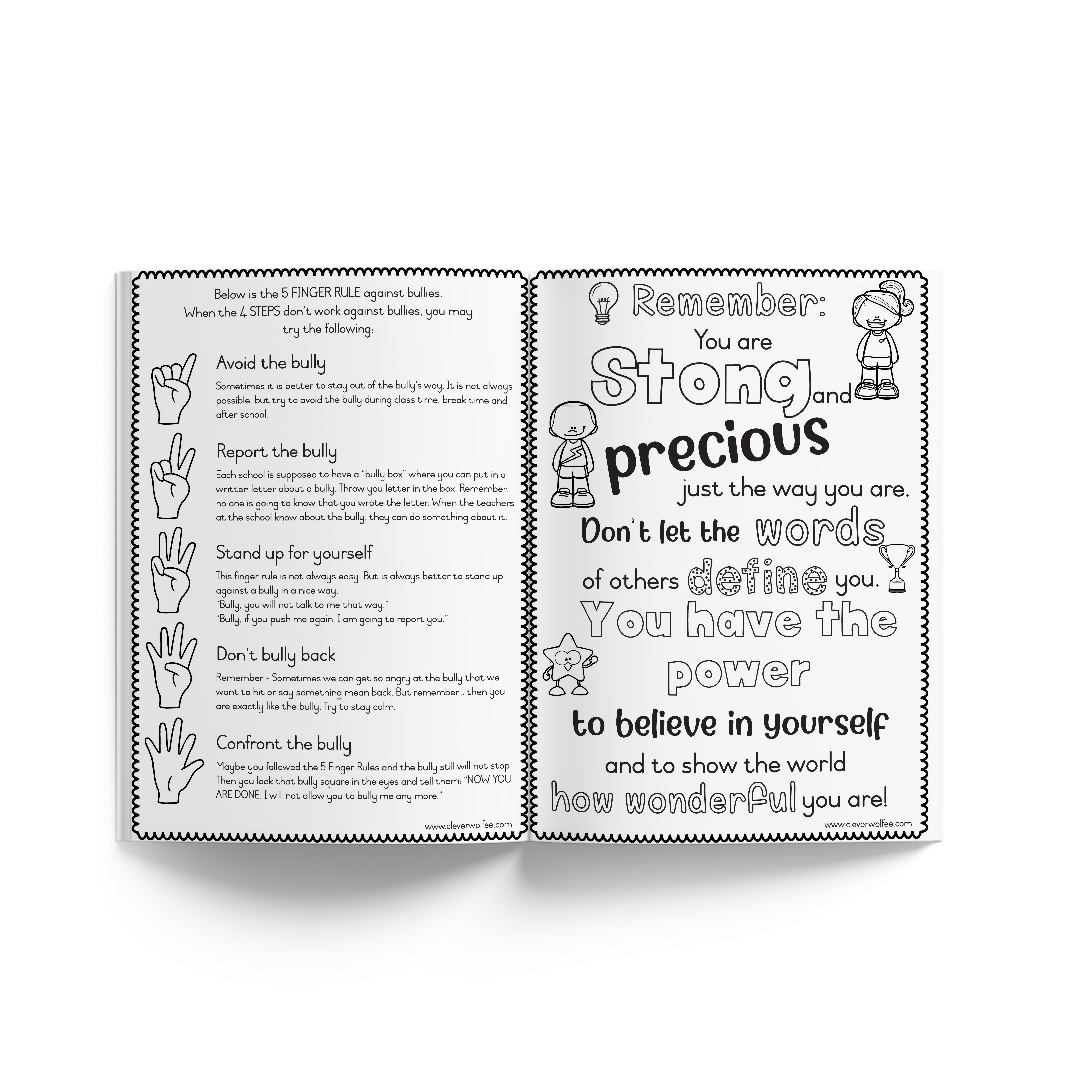 Below is the 5 FINGER RULE against bullies.
When the 4 STEPS don't work against bullies, you may
try the following:
Avoid the bully
Sometimes it is better to stay out of the bully's way. It is not always
possible, but try to avoid the bully during class time, break time and
after school.
Report the bully
Each school is supposed to have a "bully box" where you can put in a
written letter about a bully. Throw you letter in the box. Remember,
no one is going to know that you wrote the letter. When the teachers
at the school know about the bully, they can do something about it.
Stand up for yourself
This finger rule is not always easy. But is always better to stand up
against a bully in a nice way.
"Bully, you will not talk to me that way."
"Bully, if you push me again, I am going to report you."
Don't bully back
Remember - Sometimes we can get so angry at the bully that we
want to hit or say something mean back. But remember... then you
are exactly like the bully. Try to stay calm.
Confront the bully
Maybe you followed the 5 Finger Rules and the bully still will not stop.
Then you look that bully square in the eyes and tell them: "NOW YOU
ARE DONE. I will not allow you to bully me any more."
www.cleverwolfee.com
Remember:
You are
Stong and
precious
just the way you are.
Don't let the words
of others define you.
You have the
power
to believe in yourself
and to show the world
how wonderful you are!
www.cleverwolfee.com